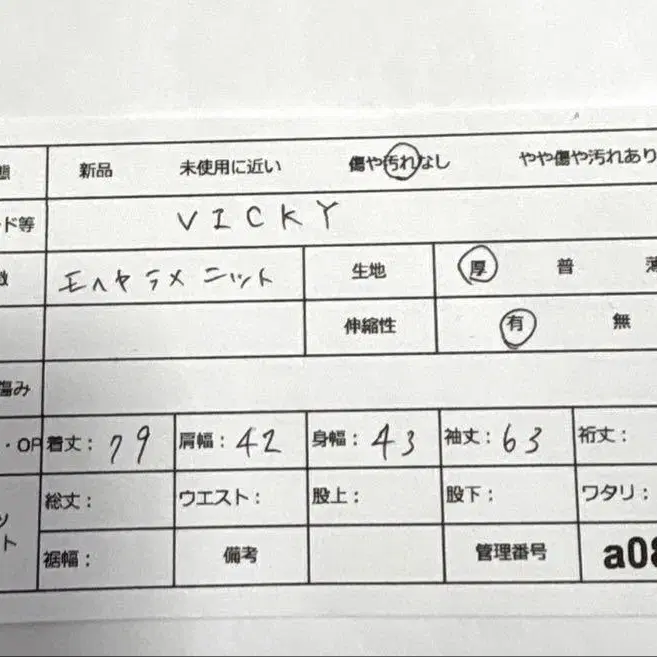 態 新品 未使用に近い 傷や汚れなし やや傷や汚れあり
ド等 VICKY
徴 モヘヤラメニット 生地 厚 普 薄
伸縮性 有 無
傷み
・OP 着丈: 79 肩幅: 42 身幅: 43 袖丈: 63 裄丈:
総丈: ウエスト: 股上: 股下: ワタリ:
ツ
ト
裾幅: 備考 管理番号 a08